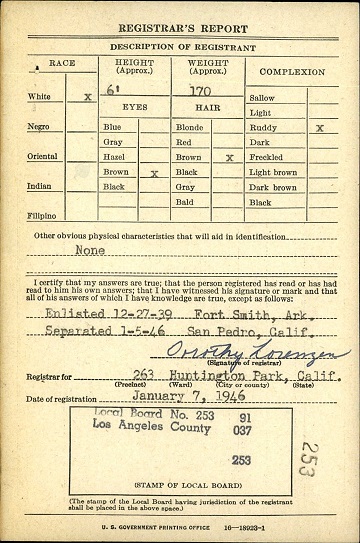 REGISTRAR'S REPORT
DESCRIPTION OF REGISTRANT
RACE
HEIGHT (Approx.)
WEIGHT (Approx.)
COMPLEXION
6'
170
White x
EYES
HAIR
Sallow
Light
Negro
Blue
Blonde
Ruddy x
Gray
Red
Dark
Oriental
Hazel
Brown x
Freckled
Brown x
Black
Light brown
Indian
Black
Gray
Dark brown
Bald
Black
Filipino
Other obvious physical characteristics that will aid in identification
None
I certify that my answers are true; that the person registered has read or has had
read to him his own answers; that I have witnessed his signature or mark and that
all of his answers of which I have knowledge are true, except as follows:
Enlisted 12-27-39 Fort Smith, Ark.
Separated 1-5-46 San Pedro, Calif.
Dorothy Lorenzen
(Signature of registrar)
Registrar for 263 Huntington Park, Calif.
(Precinct) (Ward) (City or county) (State)
Date of registration January 7, 1946
Local Board No. 253 91
Los Angeles County 037
253
253
(STAMP OF LOCAL BOARD)
(The stamp of the Local Board having jurisdiction of the registrant
shall be placed in the above space.)
U. S. GOVERNMENT PRINTING OFFICE 16—18923-1